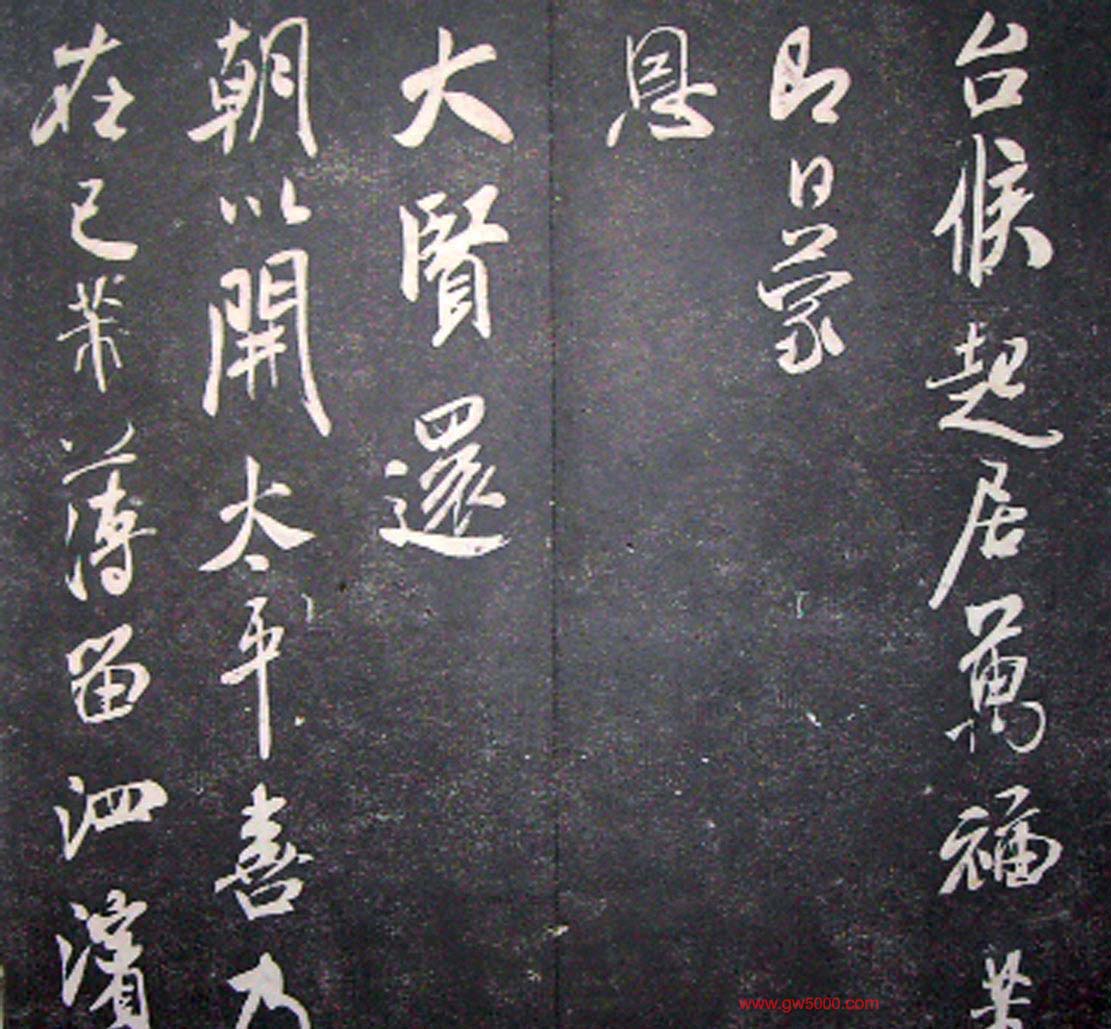 台候起居萬福芾
即日蒙
恩
大賢還
朝以開太平喜乃
在己芾薄留泗濱
www.gw5000.com